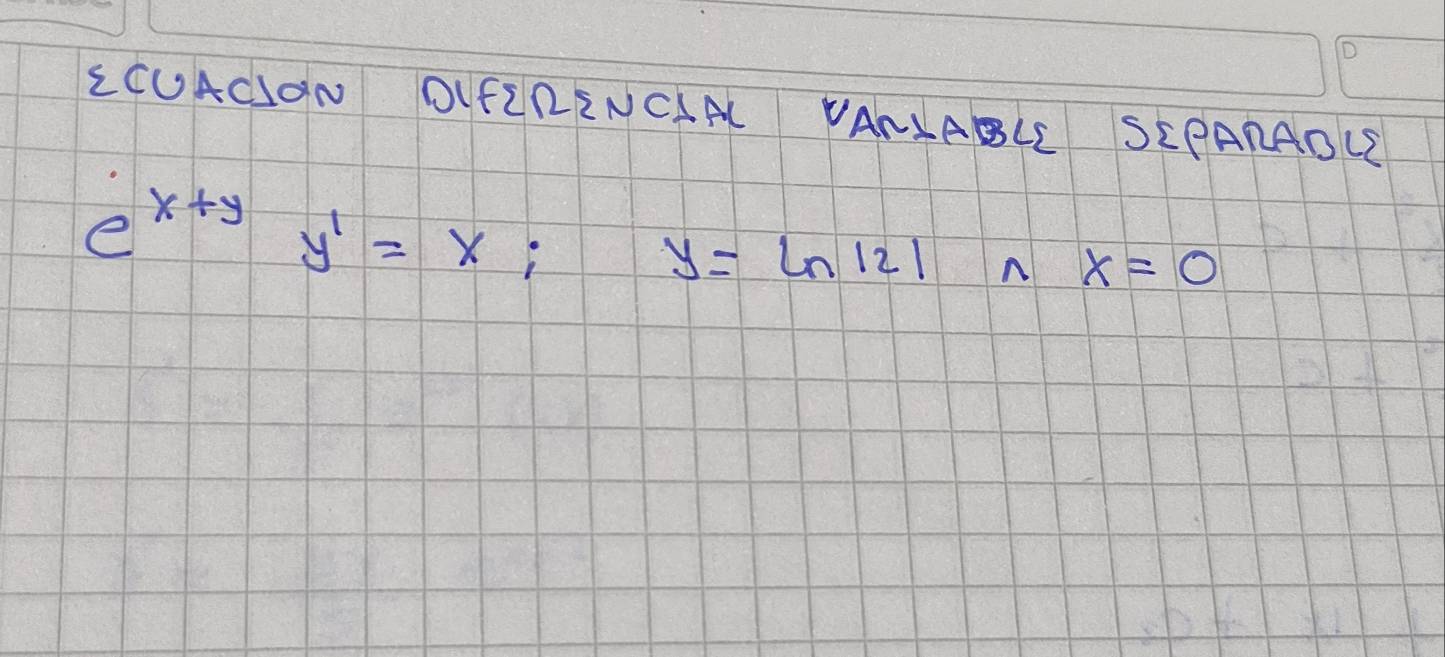 ECUACION DIFERENCIAL VARIABLE SEPARABLE
e^{x+y} y' = x ; y = ln |2| ∧ x = 0
D